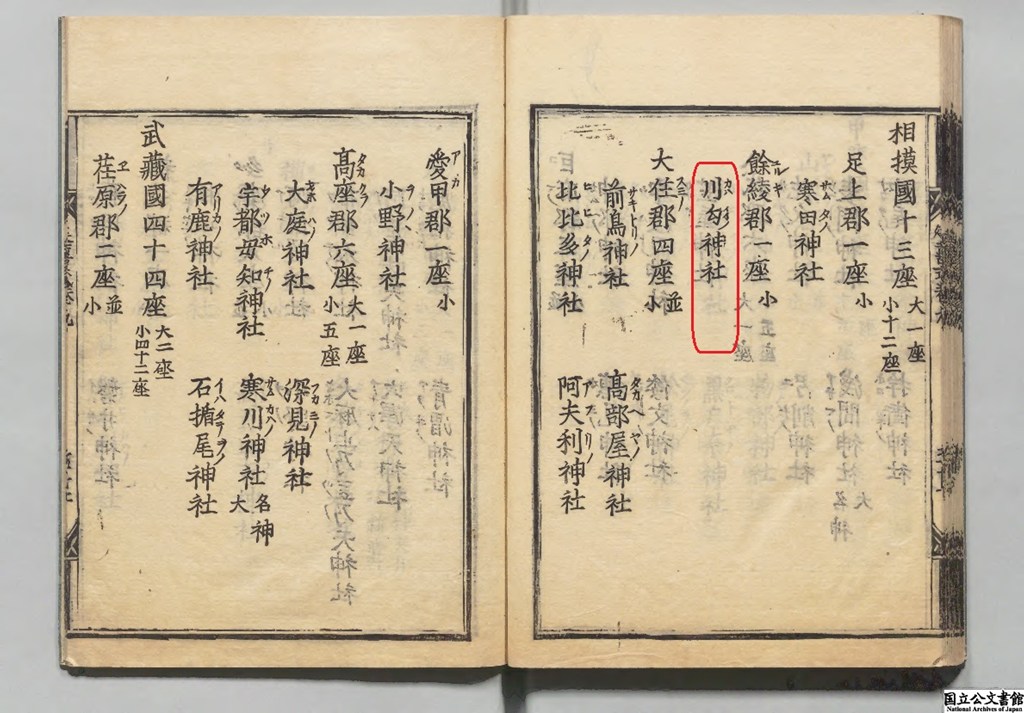 相摸國十三座 大一座 小十二座
足上郡一座 小
寒田神社
餘綾郡一座 小
川勾神社
大住郡四座 並小
前鳥神社 高部屋神社
比比多神社 阿夫利神社
愛甲郡一座 小
小野神社
高座郡六座 大一座 小五座
大庭神社 深見神社
宇都毋知神社 寒川神社 名神大
有鹿神社 石楯尾神社
武藏國四十四座 大二座 小四十二座
荏原郡二座 並小
国立公文書館
National Archives of Japan